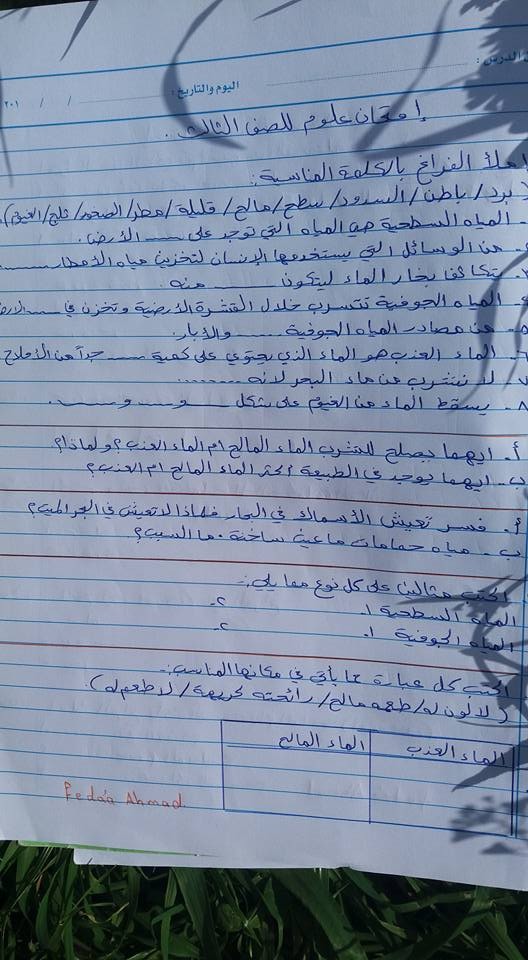 الدرس :
اليوم والتاريخ :
/ / ٢٠١
إمتحان علوم للصف الثالث .
املأ الفراغ بالكلمة المناسبة :
برد / باطن / السدود / سطح / مالح / قليلة / مطر / الصخور / ثلج / الغيوم ).
المياه السطحية هي المياه التي توجد على ــــ الأرض .
من الوسائل التي يستخدمها الإنسان لتخزين مياه الأمطار ــــ
يتكاثف بخار الماء ليتكون ــــ منه .
المياه الجوفية تتسرب خلال القشرة الأرضية وتخزن في ــــ الأرض
٥. من مصادر المياه الجوفية ــــ والآبار .
٦. الماء العذب هو الماء الذي يحتوي على كمية ــــ جداً من الأملاح
٧. لا نشرب من ماء البحر لأنه .......
٨. يسقط الماء من الغيوم على شكل ــــ و ــــ و ــــ .
أ. ايهما يصلح للشرب الماء المالح ام الماء العذب ؟ ولماذا ؟
ب. ايهما يوجد في الطبيعة اكثر الماء المالح ام العذب ؟
أ. فسر تعيش الأسماك في البحار فلماذا لا تعيش في البحر الميت ؟
ب - مياه حمامات ماعين ساخنة . ما السبب ؟
اكتب مثالين على كل نوع مما يلي :-
المياه السطحية ١. ٢.
المياه الجوفية ١. ٢.
اكتب كل عبارة مما يأتي في مكانها المناسب :-
( لا لون له / طعمه مالح / رائحته كريهة / لا طعم له ).
الماء العذب الماء المالح
Feda'a Ahmad